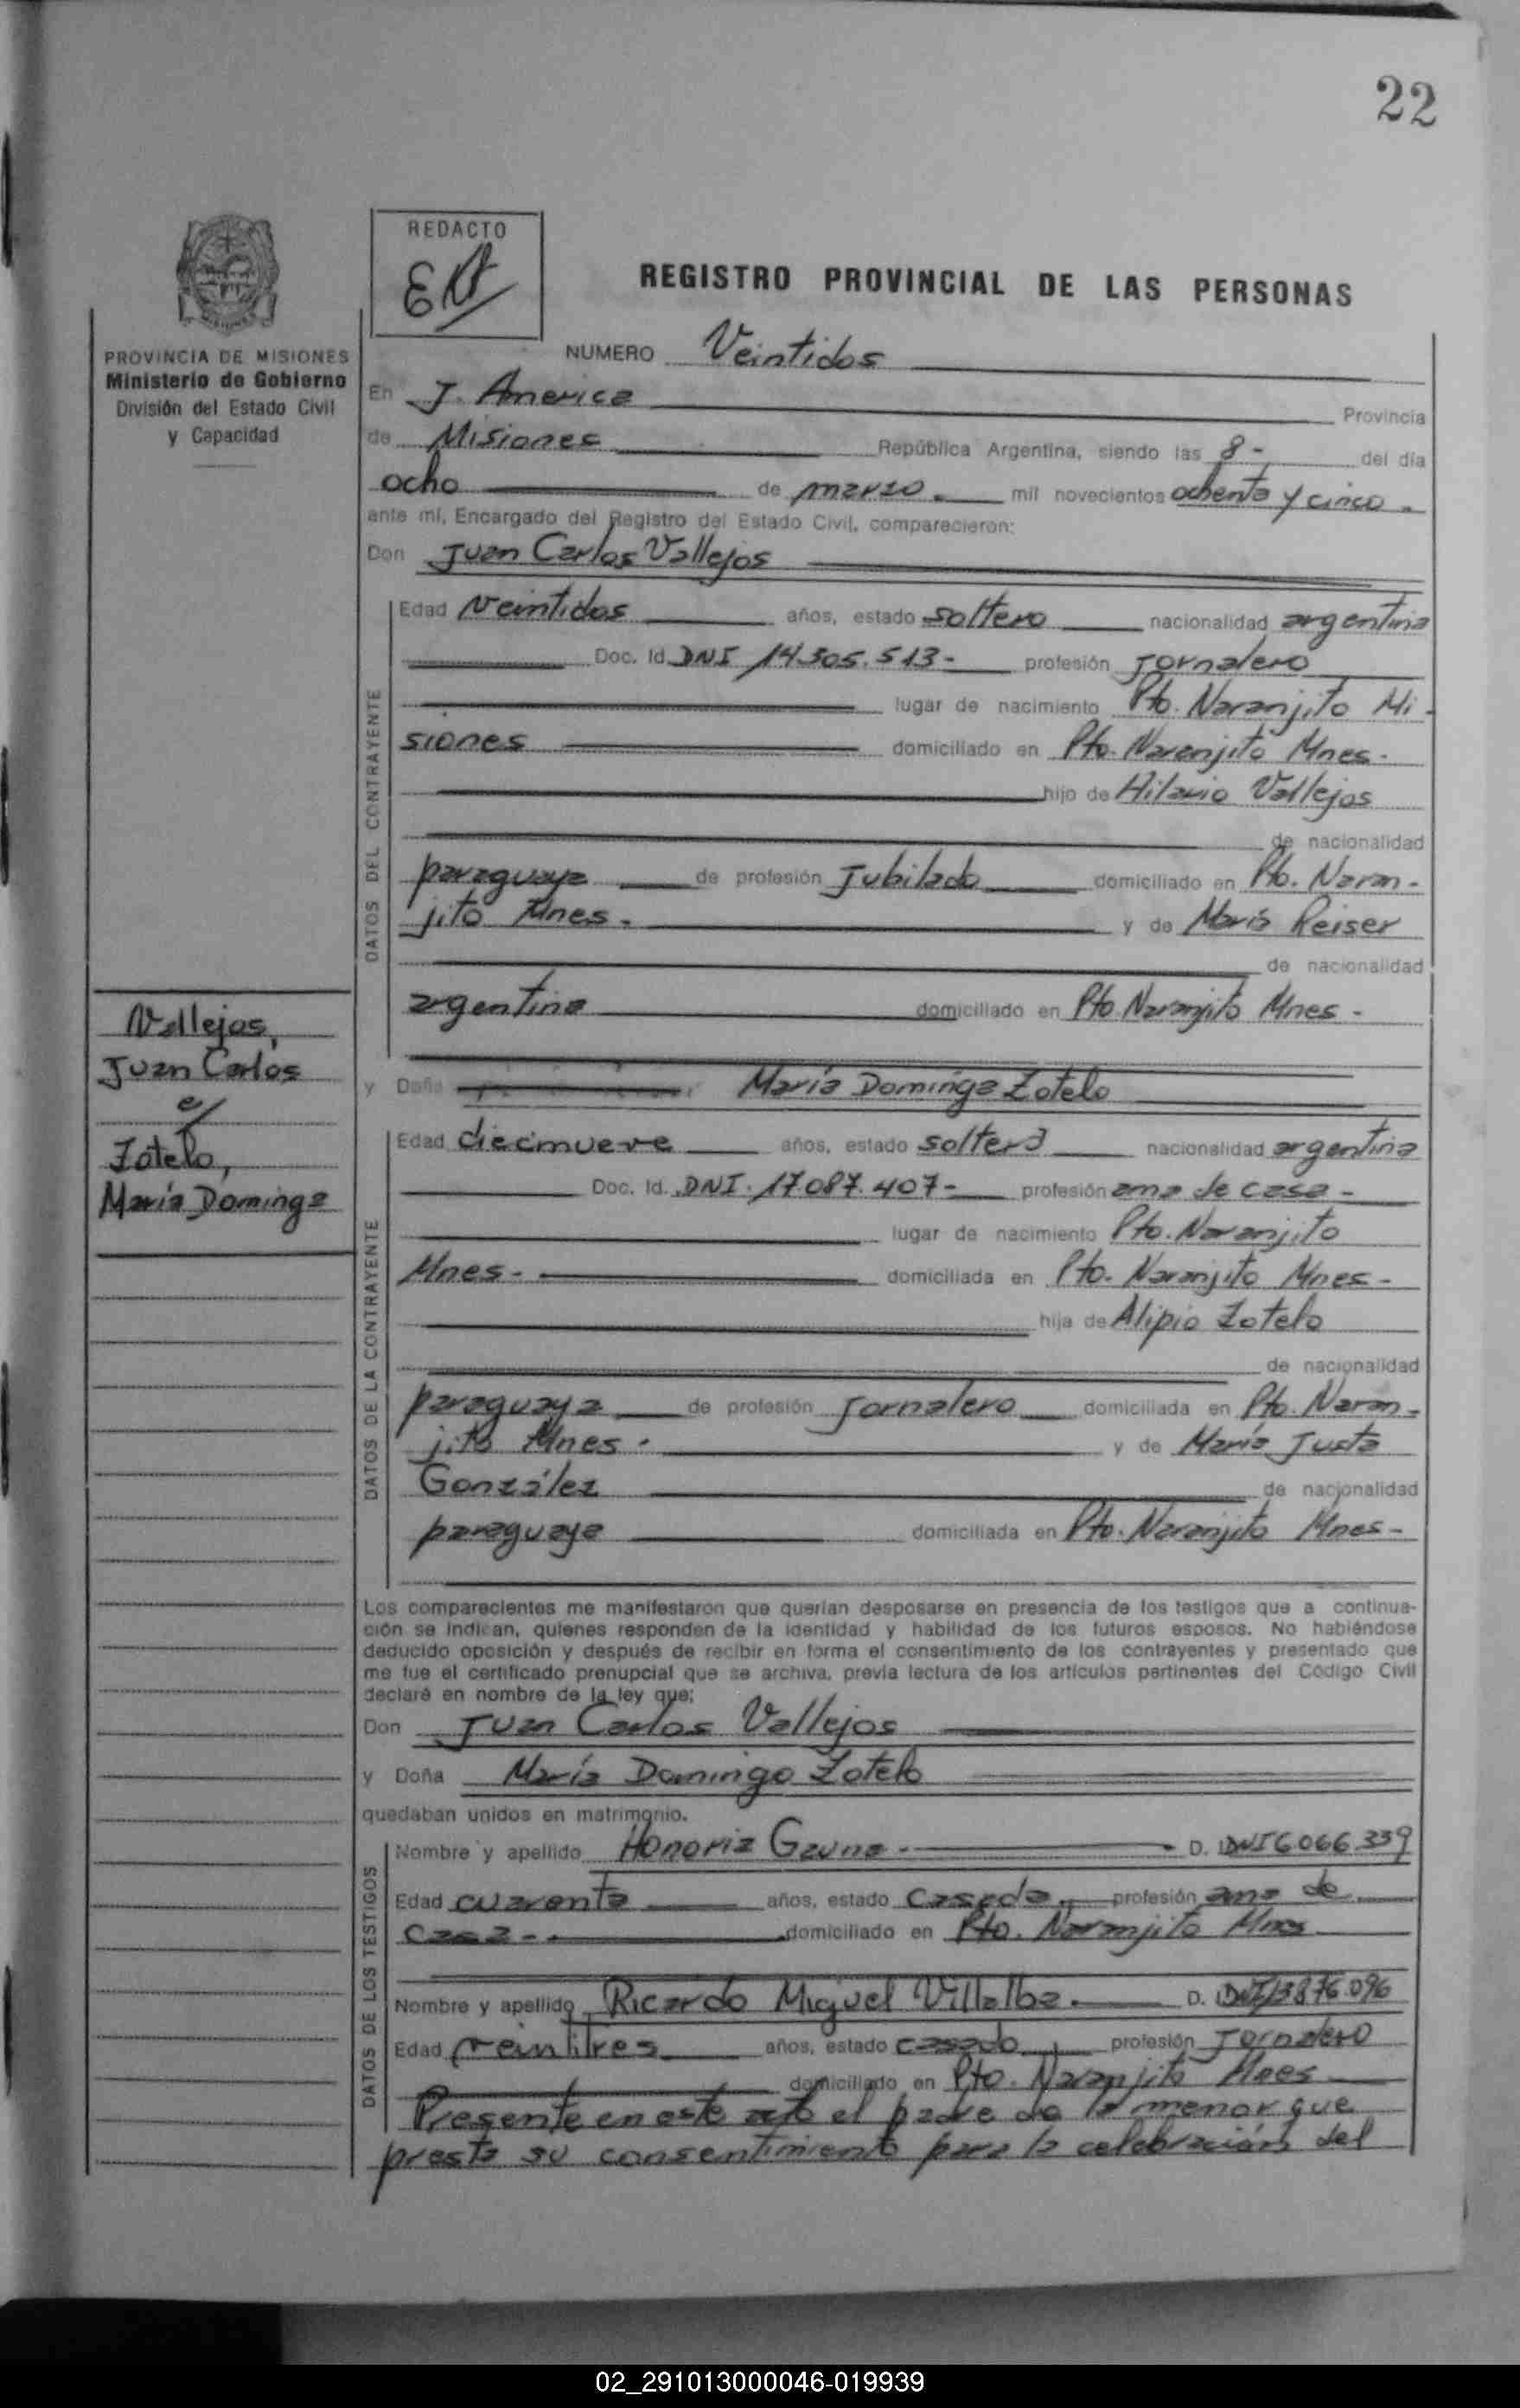 22
REDACTO
REGISTRO PROVINCIAL DE LAS PERSONAS
PROVINCIA DE MISIONES
Ministerio de Gobierno
División del Estado Civil
y Capacidad
NUMERO Veintidos
En J. America Provincia
de Misiones República Argentina, siendo las 8- del día
ocho de marzo. mil novecientos ochenta y cinco.
ante mí, Encargado del Registro del Estado Civil, comparecieron:
Don Juan Carlos Vallejos
DATOS DEL CONTRAYENTE
Edad Veintidos años, estado soltero nacionalidad argentina
Doc. Id. DNI 14.505.513- profesión Jornalero
lugar de nacimiento Pto. Naranjito Mi-
siones domiciliado en Pto. Naranjito Mnes-
hijo de Hilario Vallejos
de nacionalidad
paraguaya de profesión Jubilado domiciliado en Pto. Naran-
jito Mnes. y de María Reiser
de nacionalidad
argentina domiciliado en Pto Naranjito Mnes-
Vallejos,
Juan Carlos
c/
Zotelo,
María Dominga
y Doña María Dominga Zotelo
DATOS DE LA CONTRAYENTE
Edad diecinueve años, estado soltera nacionalidad argentina
Doc. Id. DNI. 17.087.407- profesión ama de casa-
lugar de nacimiento Pto. Naranjito
Mnes- domiciliada en Pto. Naranjito Mnes-
hija de Alipio Zotelo
de nacionalidad
paraguaya de profesión Jornalero domiciliada en Pto. Naran-
jito Mnes. y de María Justa
González de nacionalidad
paraguaya domiciliada en Pto. Naranjito Mnes-
Los comparecientes me manifestaron que querían desposarse en presencia de los testigos que a continua-
ción se indican, quienes responden de la identidad y habilidad de los futuros esposos. No habiéndose
deducido oposición y después de recibir en forma el consentimiento de los contrayentes y presentado que
me fue el certificado prenupcial que se archiva, previa lectura de los artículos pertinentes del Código Civil
declaré en nombre de la ley que:
Don Juan Carlos Vallejos
y Doña María Dominga Zotelo
quedaban unidos en matrimonio.
DATOS DE LOS TESTIGOS
Nombre y apellido Honoria Gauna- D. I. DNI 6.066.339
Edad cuarenta años, estado Casada, profesión ama de
casa- domiciliado en Pto. Naranjito Mnes
Nombre y apellido Ricardo Miguel Villalba. D. I. DNI 13.876.096
Edad veintitres años, estado casado, profesión Jornalero
domiciliado en Pto. Naranjito Mnes
Presente en este acto el padre de la menor que
presta su consentimiento para la celebración del
02_291013000046-019939